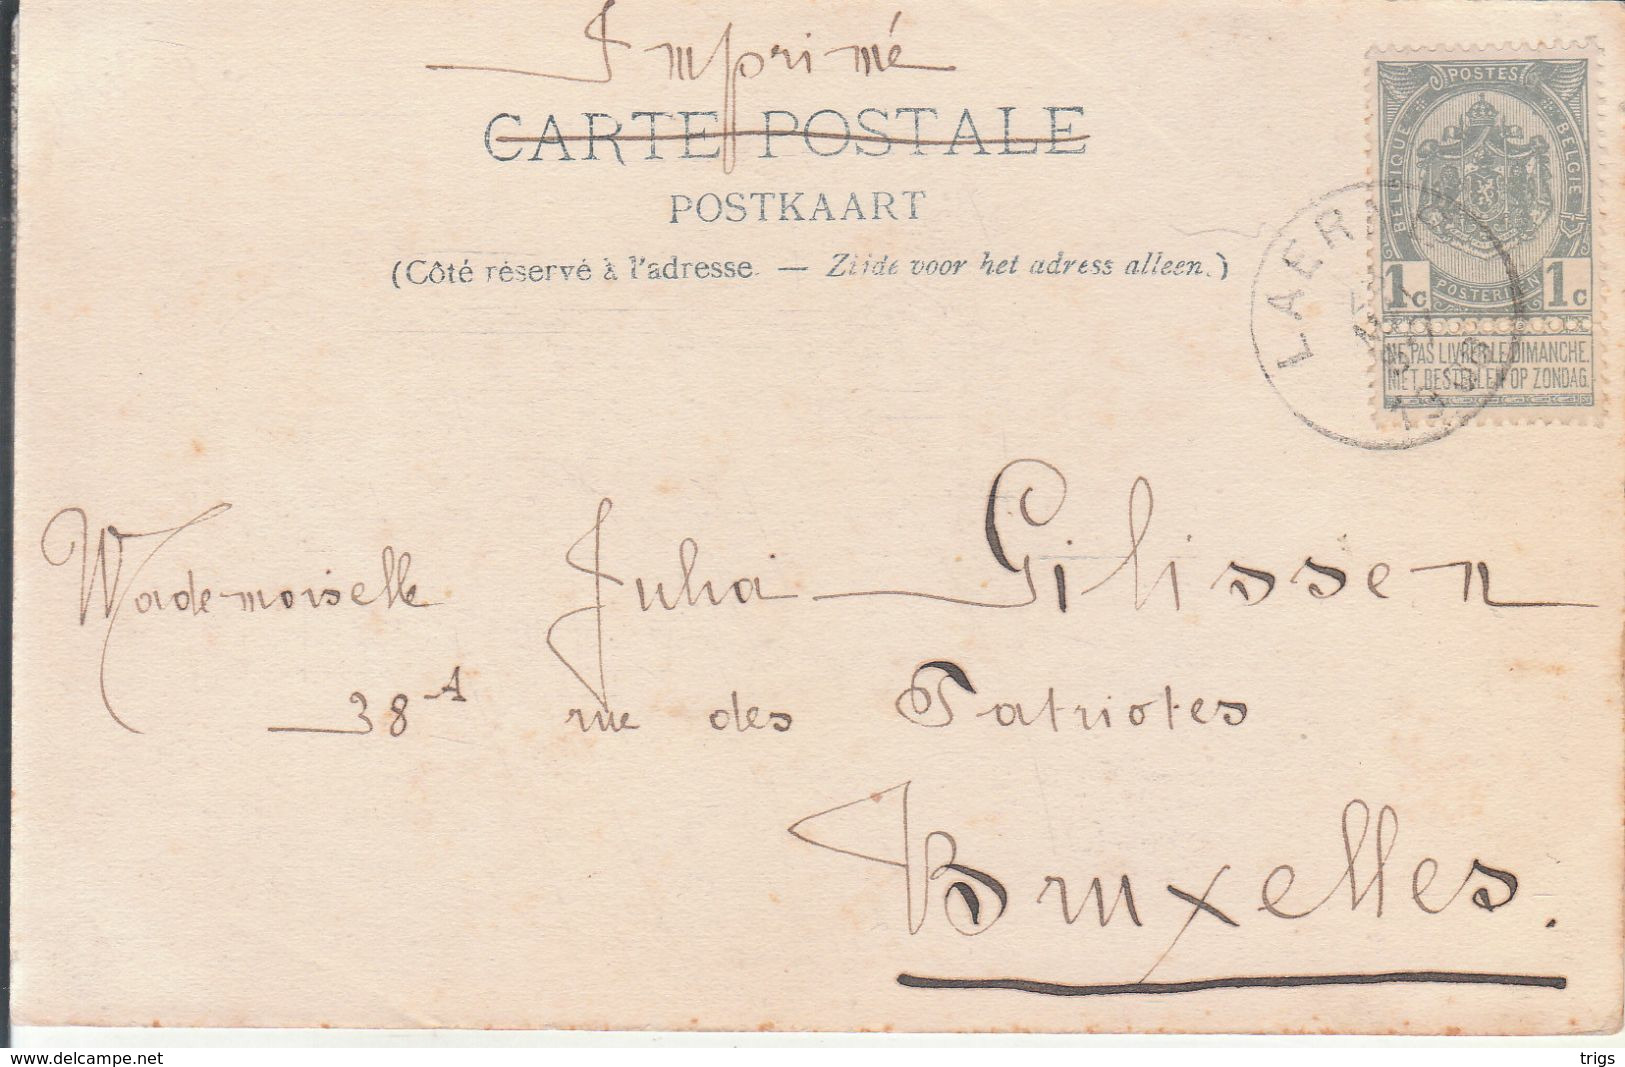 Imprimé
CARTE POSTALE
POSTKAART
(Côté réservé à l'adresse. — Zijde voor het adress alleen.)
POSTES
BELGIQUE
BELGIE
POSTERIJEN
1c 1c
NE PAS LIVRER LE DIMANCHE.
NIET BESTELLEN OP ZONDAG.
Mademoiselle Julia Gilissen
38 A rue des Patriotes
Bruxelles.
www.delcampe.net
trigs